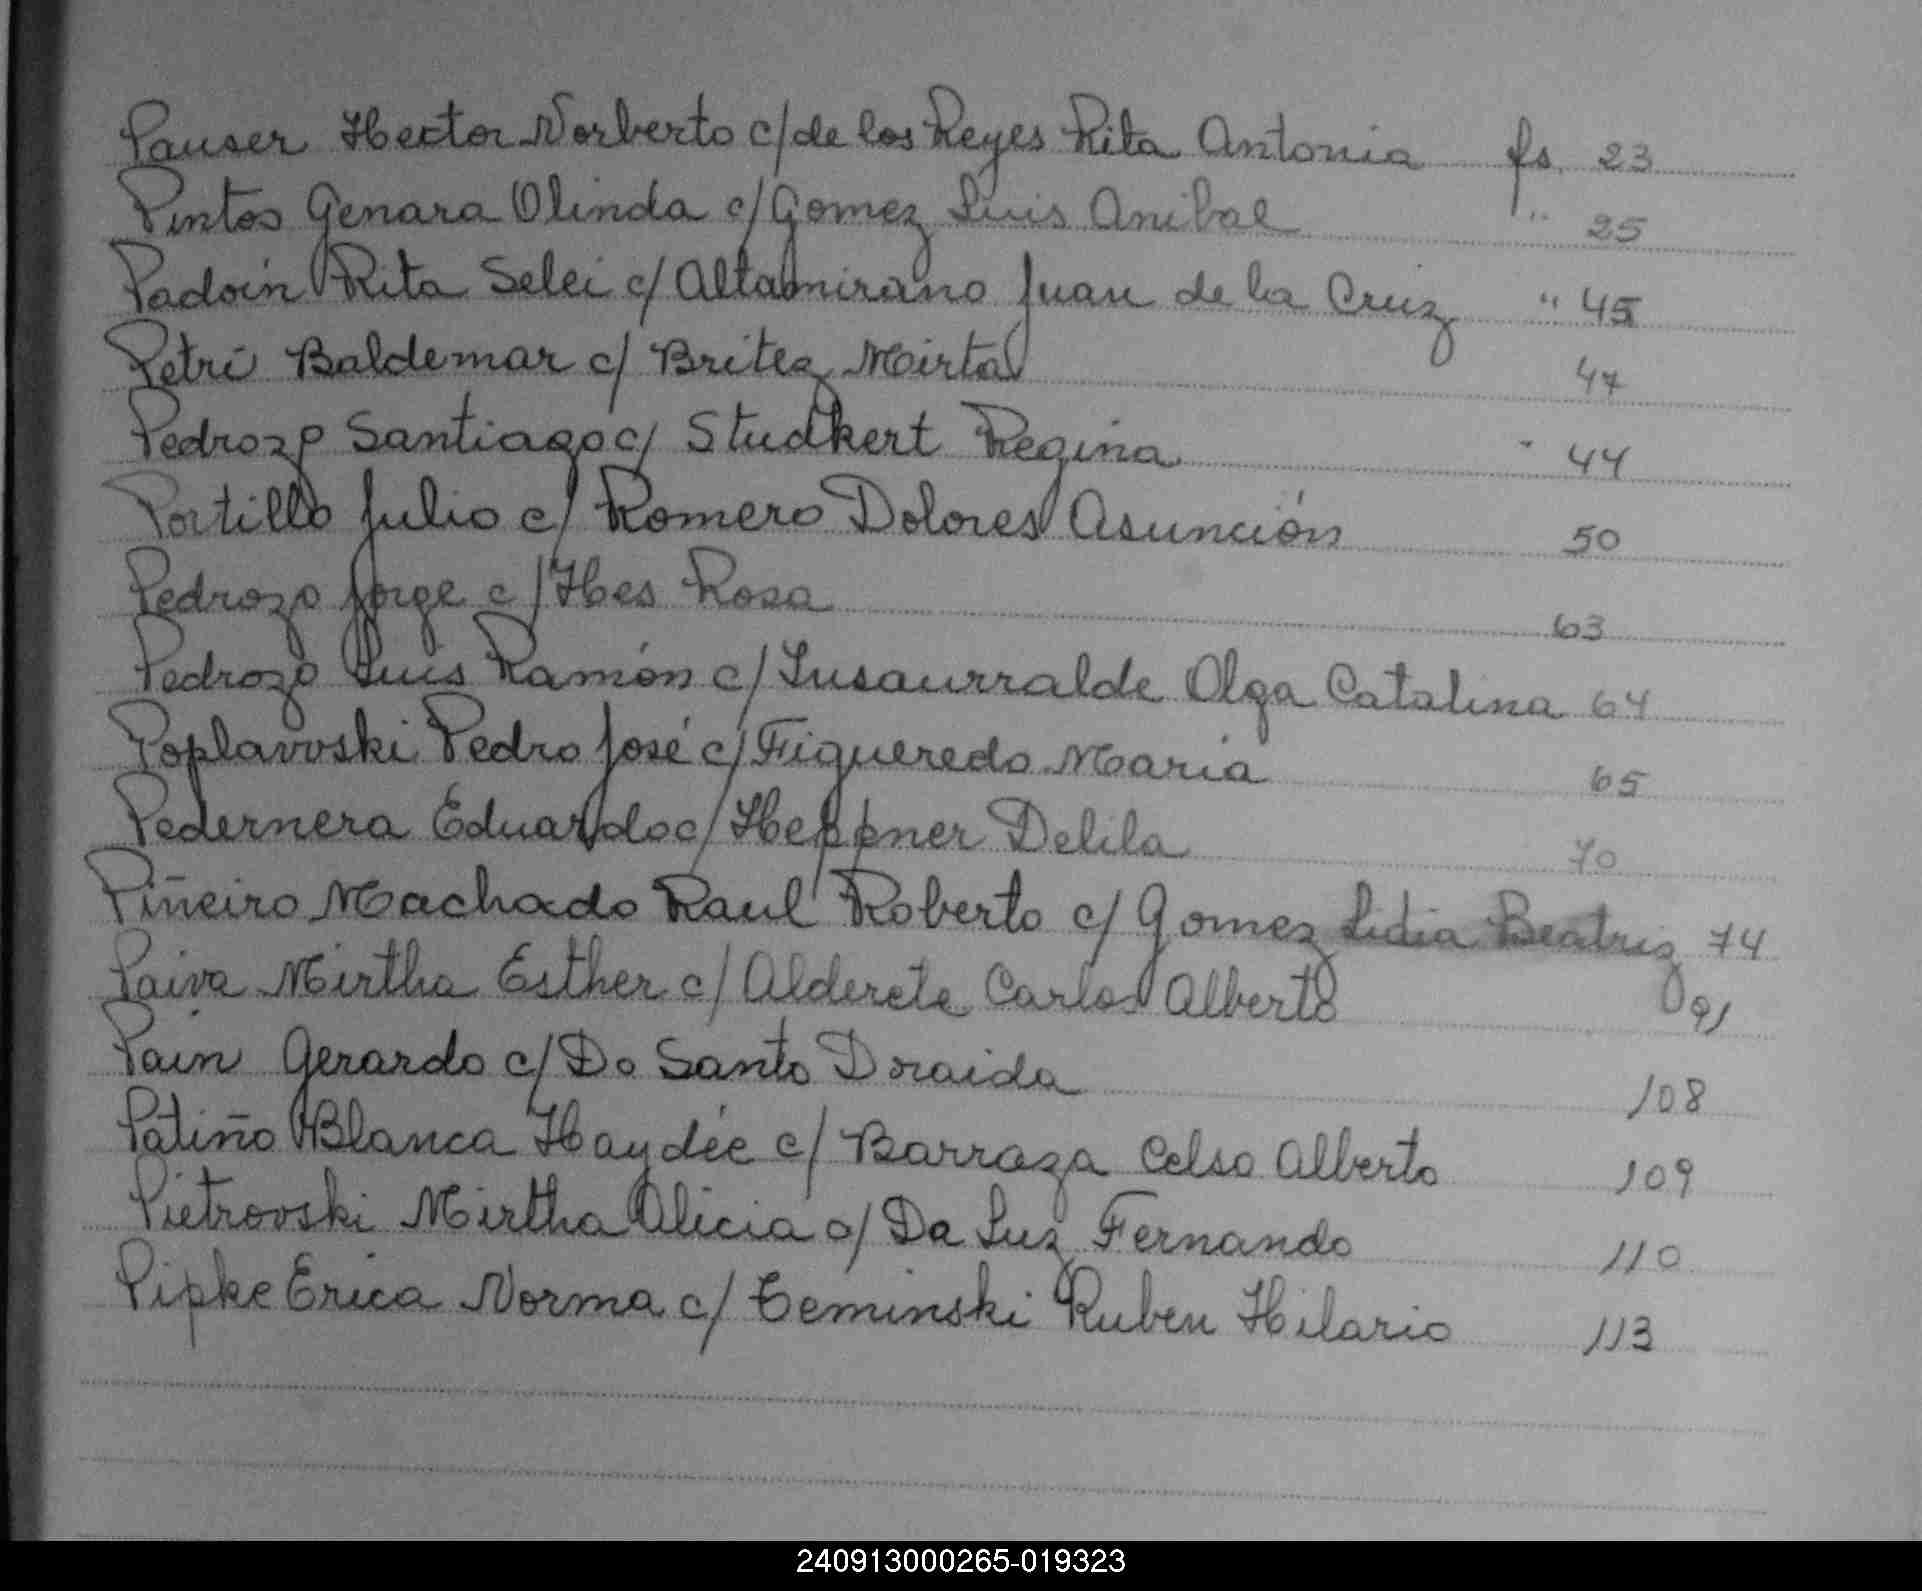 Pauser Hector Norberto c/ de los Reyes Rita Antonia fs. 23
Pintos Genara Olinda c/ Gomez Luis Anibal " 25
Padoin Rita Selei c/ Altamirano Juan de la Cruz " 45
Petri Baldemar c/ Britez Mirta 47
Pedrozo Santiago c/ Studkert Regina " 44
Portillo Julio c/ Romero Dolores Asunción 50
Pedrozo Jorge c/ Hes Rosa 63
Pedrozo Luis Ramón c/ Susaurralde Olga Catalina 64
Poplavvski Pedro José c/ Figueredo Maria 65
Pedernera Eduardo c/ Heppner Delila 70
Piñeiro Machado Raul Roberto c/ Gomez Lidia Beatriz 74
Paiva Mirtha Esther c/ Alderete Carlos Alberto 91
Pain Gerardo c/ Do Santo Doraida 108
Patiño Blanca Haydée c/ Barraza Celso Alberto 109
Pietrovski Mirtha Alicia c/ Da Luz Fernando 110
Pipke Erica Norma c/ Ceminski Ruben Hilario 113
240913000265-019323